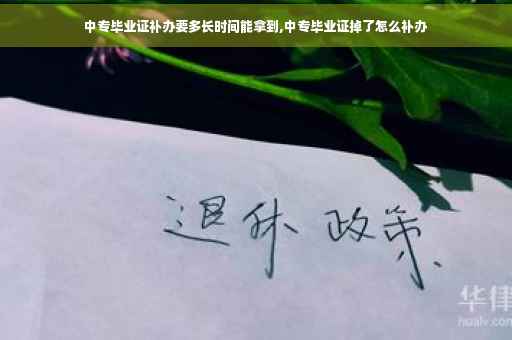 中专毕业证补办要多长时间能拿到,中专毕业证掉了怎么补办
退休 政策
华律
hualv.com